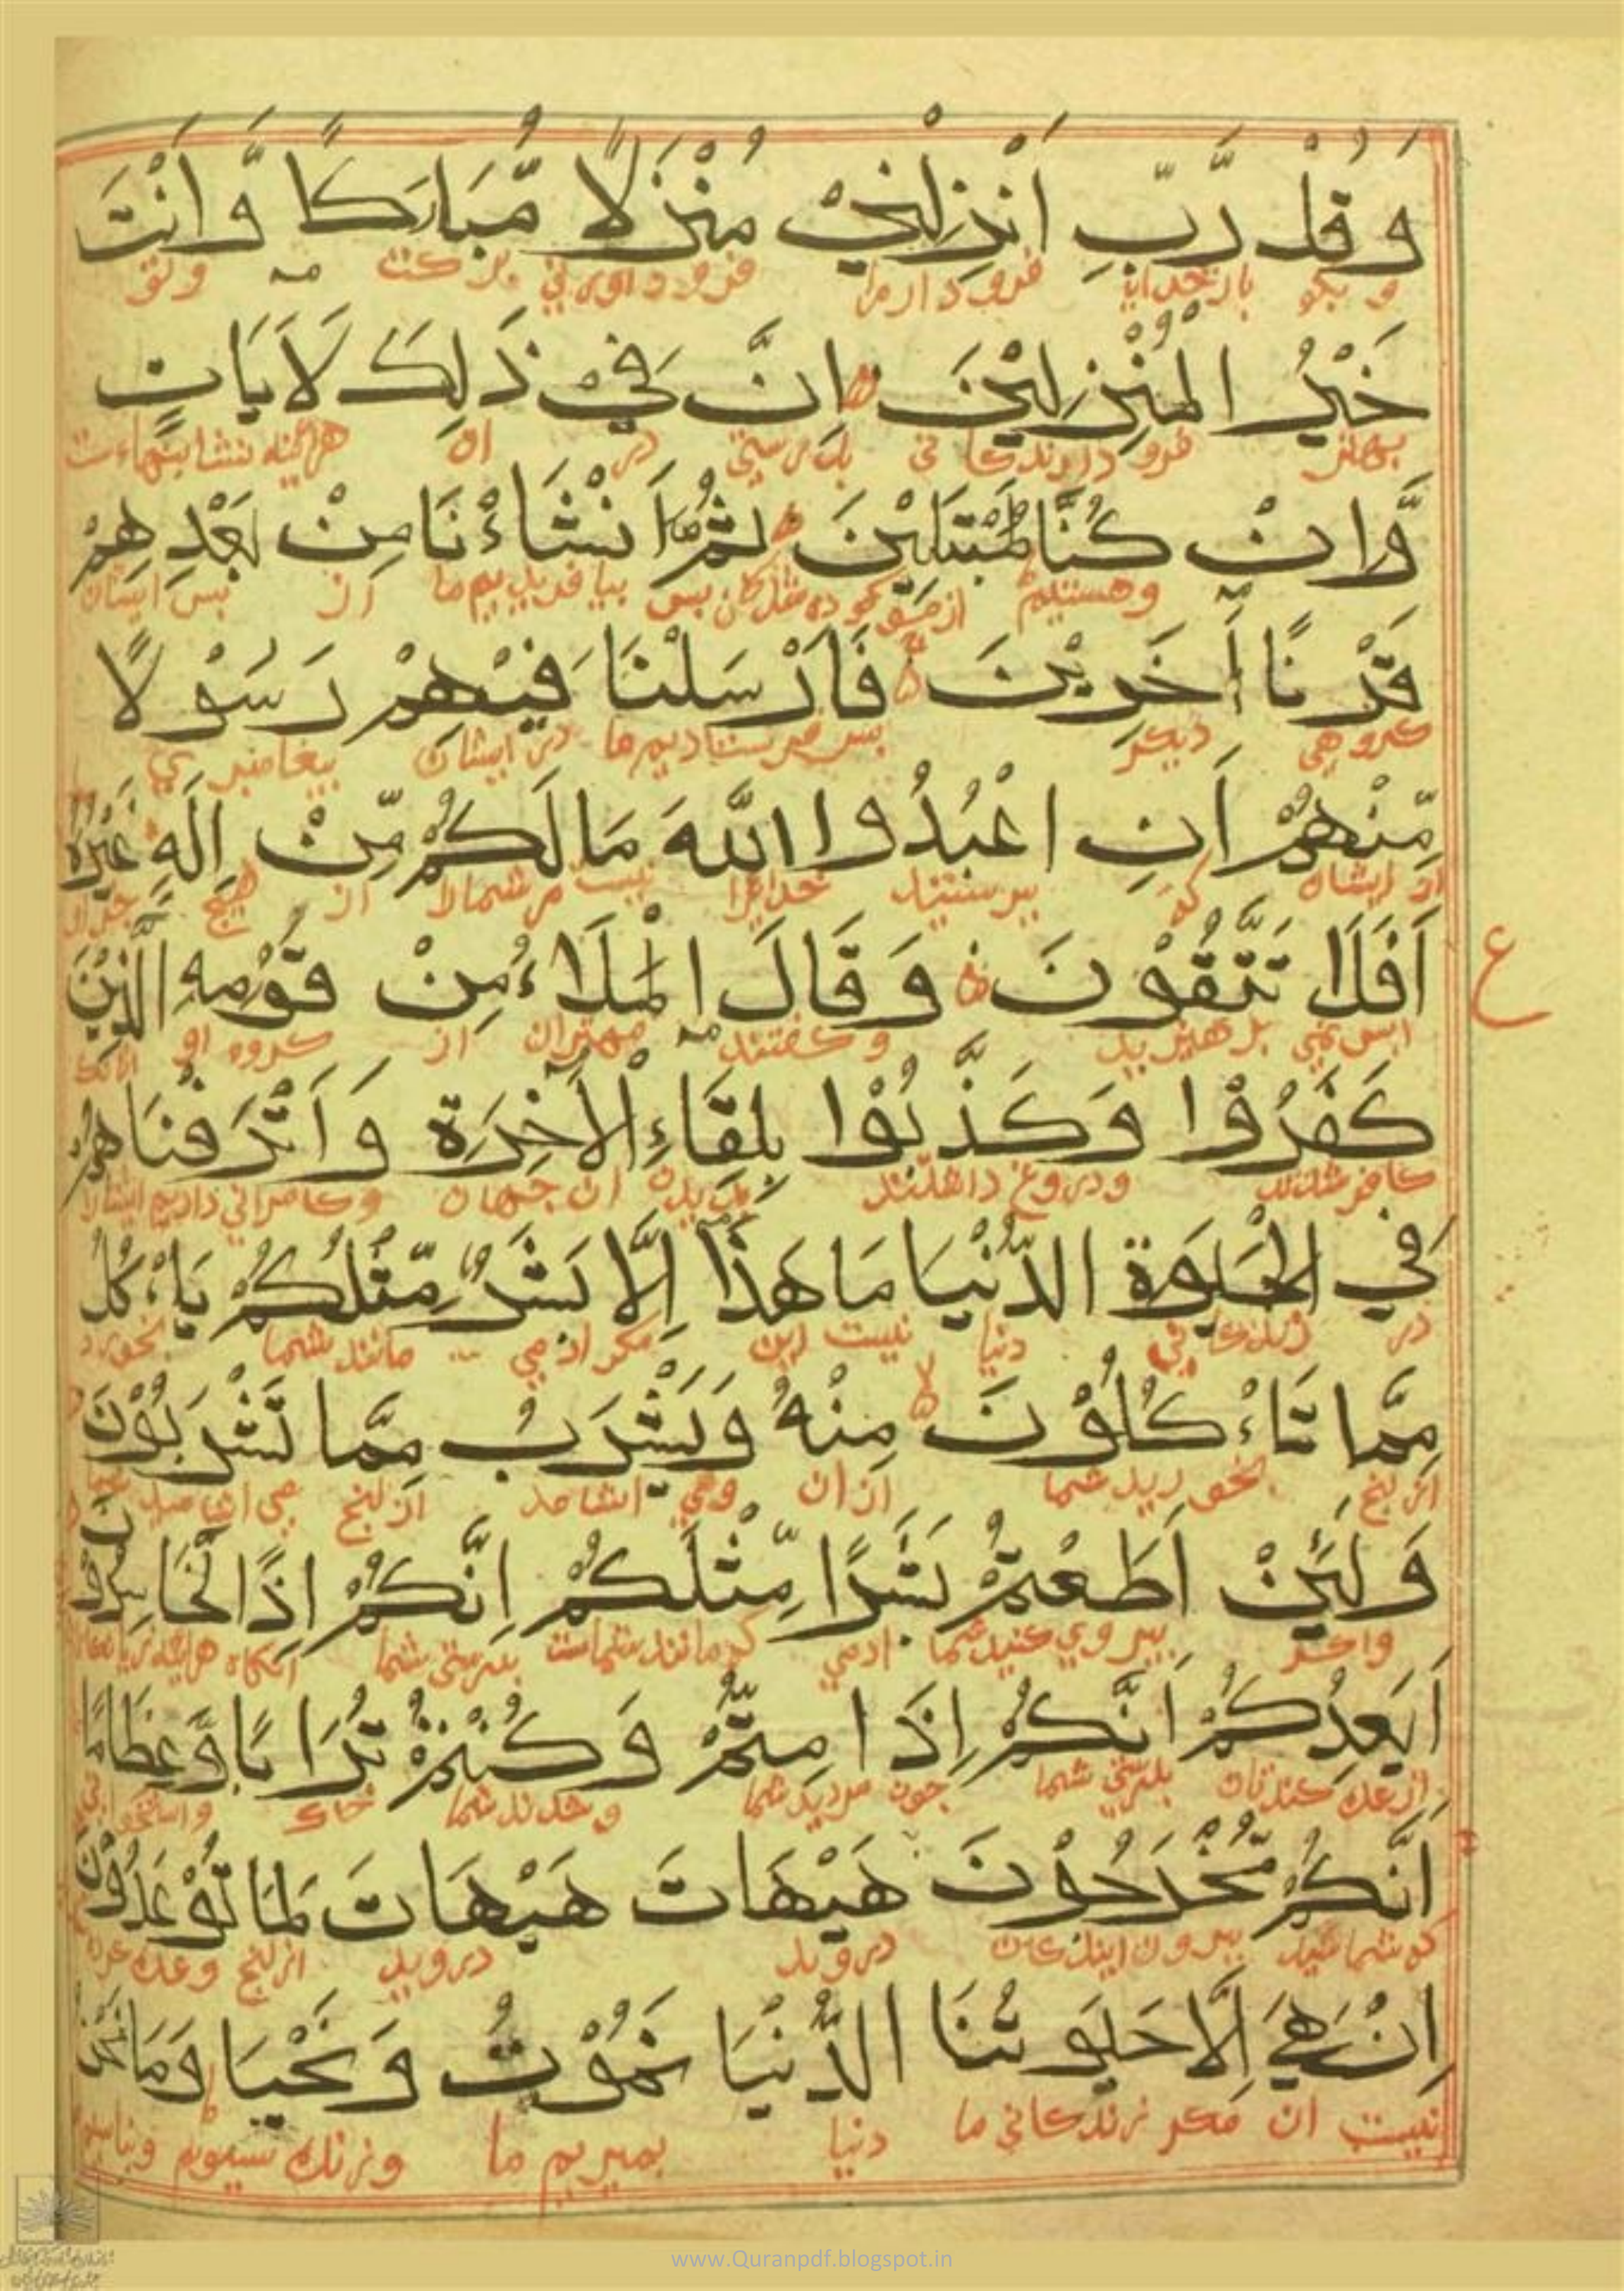 وَقُلْ رَّبِّ اَنْزِلْنِيْ مُنْزَلًا مُّبَارَكًا وَّاَنْتَ
و بگو بار خدایا فرود ار مرا فرود اوردنی برکت و تو
خَيْرُ الْمُنْزِلِيْنَ اِنَّ فِيْ ذَلِكَ لَاَيَاتٍ
بهتر فرود ارندگانی بدرستی در ان هراینه نشانیهاست
وَّاِنْ كُنَّا لَمُبْتَلِيْنَ ثُمَّ اَنْشَاْءنَا مِنْ بَعْدِهِمْ
و هستیم پس بیافریدیم ما از پس ایشان
قَرْنًا اٰخَرِيْنَ فَاَرْسَلْنَا فِيْهِمْ رَسُوْلًا
کروهی دیکر پس فرستادیم ما در ایشان پیغامبری
مِّنْهُمْ اَنِ اعْبُدُوا اللّٰهَ مَا لَكُمْ مِّنْ اِلَهٍ غَيْرُهُ
از ایشان که بپرستید خدایرا نیست مر شمارا از هیچ
اَفَلَا تَتَّقُوْنَ وَقَالَ الْمَلَاءُ مِنْ قَوْمِهِ الَّذِيْنَ
ع
ایس نمی پرهیزید و گفتند مهتران از کروه او انانک
كَفَرُوْا وَكَذَّبُوْا بِلِقَاءِ الْاٰخِرَةِ وَاَتْرَفْنَاهُمْ
کافر شدند و دروغ داشتند بدیدن ان جهان و کامرانی دادیم ایشانرا
فِي الْحَيٰوةِ الدُّنْيَا مَا هَذَا اِلَّا بَشَرٌ مِّثْلُكُمْ يَاْءكُلُ
در زندگانی دنیا نیست این مکر ادمی مانند شما بخورد
مِمَّا تَاْءكُلُوْنَ مِنْهُ وَيَشْرَبُ مِمَّا تَشْرَبُوْنَ
ازنچ بخورید شما از ان و می اشامد ازنچ می اشامید شما
وَلَئِنْ اَطَعْتُمْ بَشَرًا مِّثْلَكُمْ اِنَّكُمْ اِذًا لَّخَاسِرُوْنَ
و اگر پیروی کنید شما ادمی که مانند شماست بدرستی شما انگاه
اَيَعِدُكُمْ اَنَّكُمْ اِذَا مِتُّمْ وَكُنْتُمْ تُرَابًا وَّعِظَامًا
بدرستی شما چون مردید شما و شدند شما خاک و استخوانی
اَنَّكُمْ مُّخْرَجُوْنَ هَيْهَاتَ هَيْهَاتَ لِمَا تُوْعَدُوْنَ
که شما بیرون ایندکان دروید دروید ازنچ وعده
اِنْ هِيَ اِلَّا حَيٰوتُنَا الدُّنْيَا نَمُوْتُ وَنَحْيَا وَمَا نَحْنُ
نیست ان مکر زندکانی ما دنیا بمیریم ما و زنده
www.Quranpdf.blogspot.in